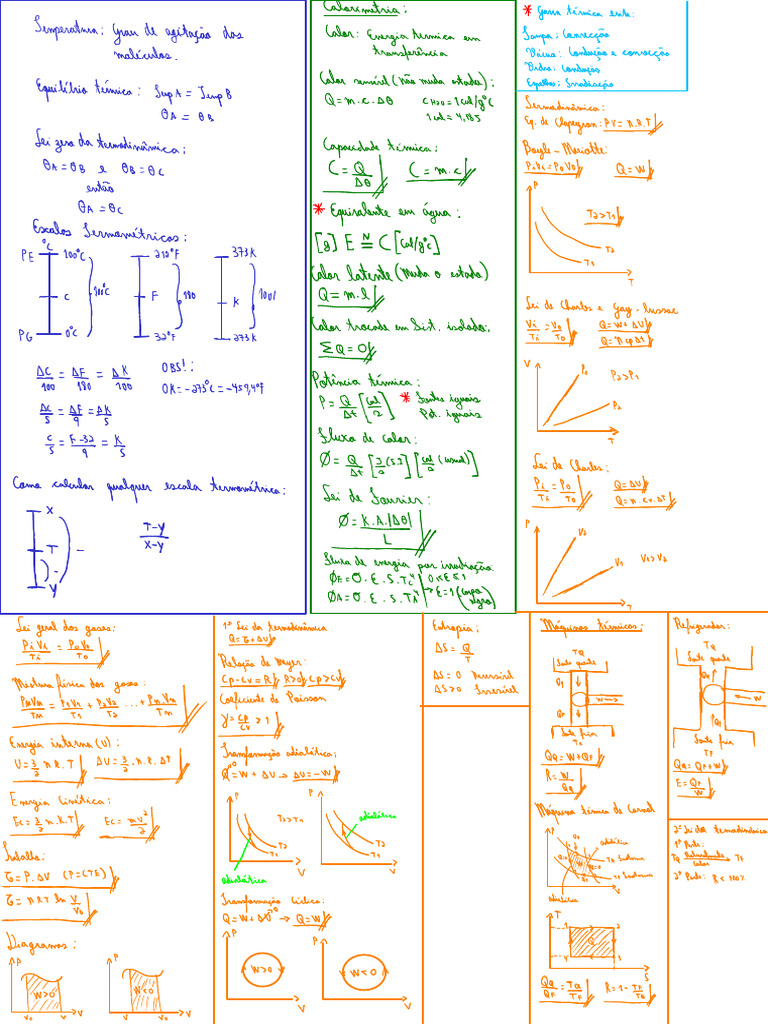 Temperatura: Grau de agitação das
moléculas.
Equilíbrio térmico: Temp A = Temp B
θA = θB
Lei zero da termodinâmica:
θA = θB e θB = θC
então
θA = θC
Escalas Termométricas:
°C
PE 100°C
C
PG 0°C
100°C
212°F
F
32°F
180
373K
K
273K
100
ΔC/100 = ΔF/180 = ΔK/100
OBS!:
0K = -273°C = -459,4°F
ΔC/5 = ΔF/9 = ΔK/5
C/5 = F-32/9 = K/5
Como calcular qualquer escala termométrica:
X
T
Y
T-y/X-y
Calorimetria:
Calor: Energia térmica em
transferência
Calor sensível (Não muda estado):
Q = m.c.Δθ
c H2O = 1cal/g°C
1cal = 4,18J
Capacidade térmica:
C = Q/Δθ
C = m.c
* Equivalente em água:
[g] E N= C [cal/g°C]
Calor latente (Muda o estado)
Q = m.l
Calor trocado em Sist. isolado:
ΣQ = 0
Potência térmica:
P = Q/Δt [cal/s]
* Fontes iguais
Pot. iguais
Fluxo de calor:
Ø = Q/Δt [J/s (SI)] [cal/s (usual)]
Lei de Fourier:
Ø = K.A.|Δθ|/L
Fluxo de energia por irradiação
ØE = σ.E.S.T⁴
0≤E≤1
ØA = σ.E.S.TA⁴
→ E=1 (corpo negro)
* Garra térmica evita:
Tampa: Convecção
Vácuo: Condução e convecção
Vidro: Condução
Espelhos: Irradiação
Termodinâmica:
Eq. de Clapeyron: PV = n.R.T
Boyle-Mariotte:
PiVi = P0V0
Q = W
P
T2 > T1
T2
T1
T
Lei de Charles e Gay-lussac
Vi/Ti = V0/T0
Q = W + ΔU
Q = n cp Δt
V
P1
P2 > P1
P2
T
Lei de Charles:
Pi/Ti = P0/T0
Q = ΔU
Q = n.cv.ΔT
P
V2
V1
V1 > V2
T
Lei geral dos gases:
PiVi/Ti = P0V0/T0
Mistura física dos gases:
PmVm/Tm = P1V1/T1 + P2V2/T2 ... + PnVn/Tn
Energia interna (U):
U = 3/2 n.R.T
ΔU = 3/2 .n.R.ΔT
Energia Cinética:
Ec = 3/2 n.K.T
Ec = mv²/2
Trabalho:
τ = P.ΔV (P=CTE)
τ = nRT ln V/V0
Diagramas:
P
W>0
V0
V
V
P
W<0
V
V0
V
1ª Lei da termodinâmica
Q = τ + ΔU
Relação de Mayer:
Cp - Cv = R
R>0
Cp > Cv
Coeficiente de Poisson
γ = Cp/Cv > 1
Transformação adiabática:
Q=0 = W + ΔU → ΔU = -W
P
T2 > T1
T2
T1
V
adiabática
P
adiabática
V
Transformação Cíclica:
Q = W + ΔU=0 → Q = W
P
W>0
V
P
W<0
V
Entropia:
ΔS = Q/T
ΔS = 0 Reversível
ΔS > 0 Irreversível
Máquinas térmicas:
TQ
Fonte quente
QQ
W
QF
Fonte fria
TF
QQ = W + QF
R = W/QQ
Máquina térmica de Carnot
P
adiabática
TQ Isoterma
TF Isoterma
adiabática
V
T
1
2
Q
4
3
S
QQ/QF = TQ/TF
R = 1 - TF/TQ
Refrigerador:
TQ
Fonte quente
QQ
W
QF
Fonte fria
TF
QQ = QF + W
E = QF/W
2ª Lei da termodinâmica
1ª Parte:
TQ Espontâneo/Calor → TF
2ª Parte: R < 100%